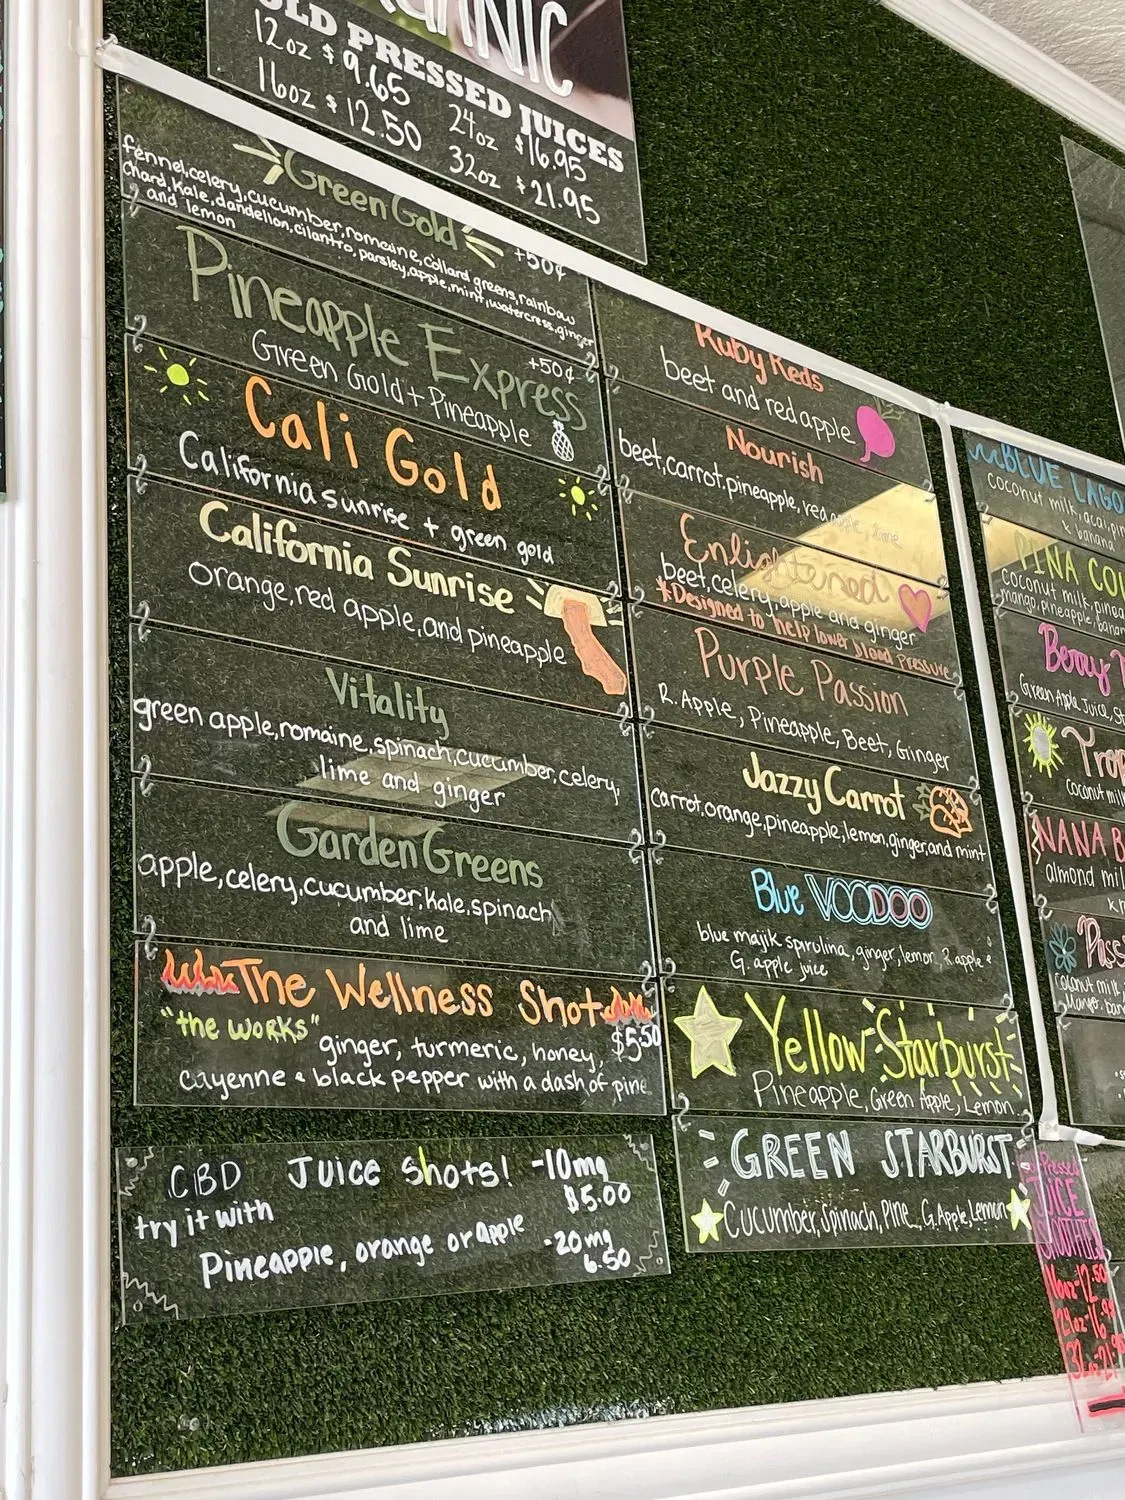 ORGANIC
COLD PRESSED JUICES
12oz $9.65
24oz $16.95
16oz $12.50
32oz $21.95
Green Gold
+50¢
fennel,celery,cucumber,romaine,collard greens,rainbow
Chard,Kale,dandelion,cilantro,parsley,apple,mint,watercress,ginger
and lemon
Pineapple Express
+50¢
Green Gold + Pineapple
Cali Gold
California sunrise + green gold
California Sunrise
orange,red apple,and pineapple
Vitality
green apple,romaine,spinach,cucumber,celery,
lime and ginger
Garden Greens
apple,celery,cucumber,kale,spinach
and lime
The Wellness Shot
"the works"
$5.50
ginger, turmeric, honey,
cayenne & black pepper with a dash of pine
CBD Juice shots! -10mg
$5.00
try it with
Pineapple, orange or apple
-20mg
6.50
Ruby Reds
beet and red apple
Nourish
beet,carrot,pineapple,red apple, lime
Enlightened
beet,celery,apple and ginger
*Designed to help lower blood pressure
Purple Passion
R. Apple, Pineapple, Beet, Ginger
Jazzy Carrot
carrot,orange,pineapple,lemon,ginger,and mint
Blue VOODOO
blue majik spirulina, ginger, lemon, R. apple &
G. apple juice
Yellow Starburst
Pineapple, Green Apple, Lemon
GREEN STARBURST
Cucumber, Spinach, Pine, G.Apple, Lemon
BLUE LAGO
coconut milk, acai, pin
& banana
PINA CO
coconut milk, pinea
mango, pineapple, banan
Berry
Green Apple Juice, St
Trop
coconut mil
NANA B
almond mil
Pass
coconut milk
Mango, ban
Pressed
JUICE
16oz-12.50
24oz-16.
32oz-21.